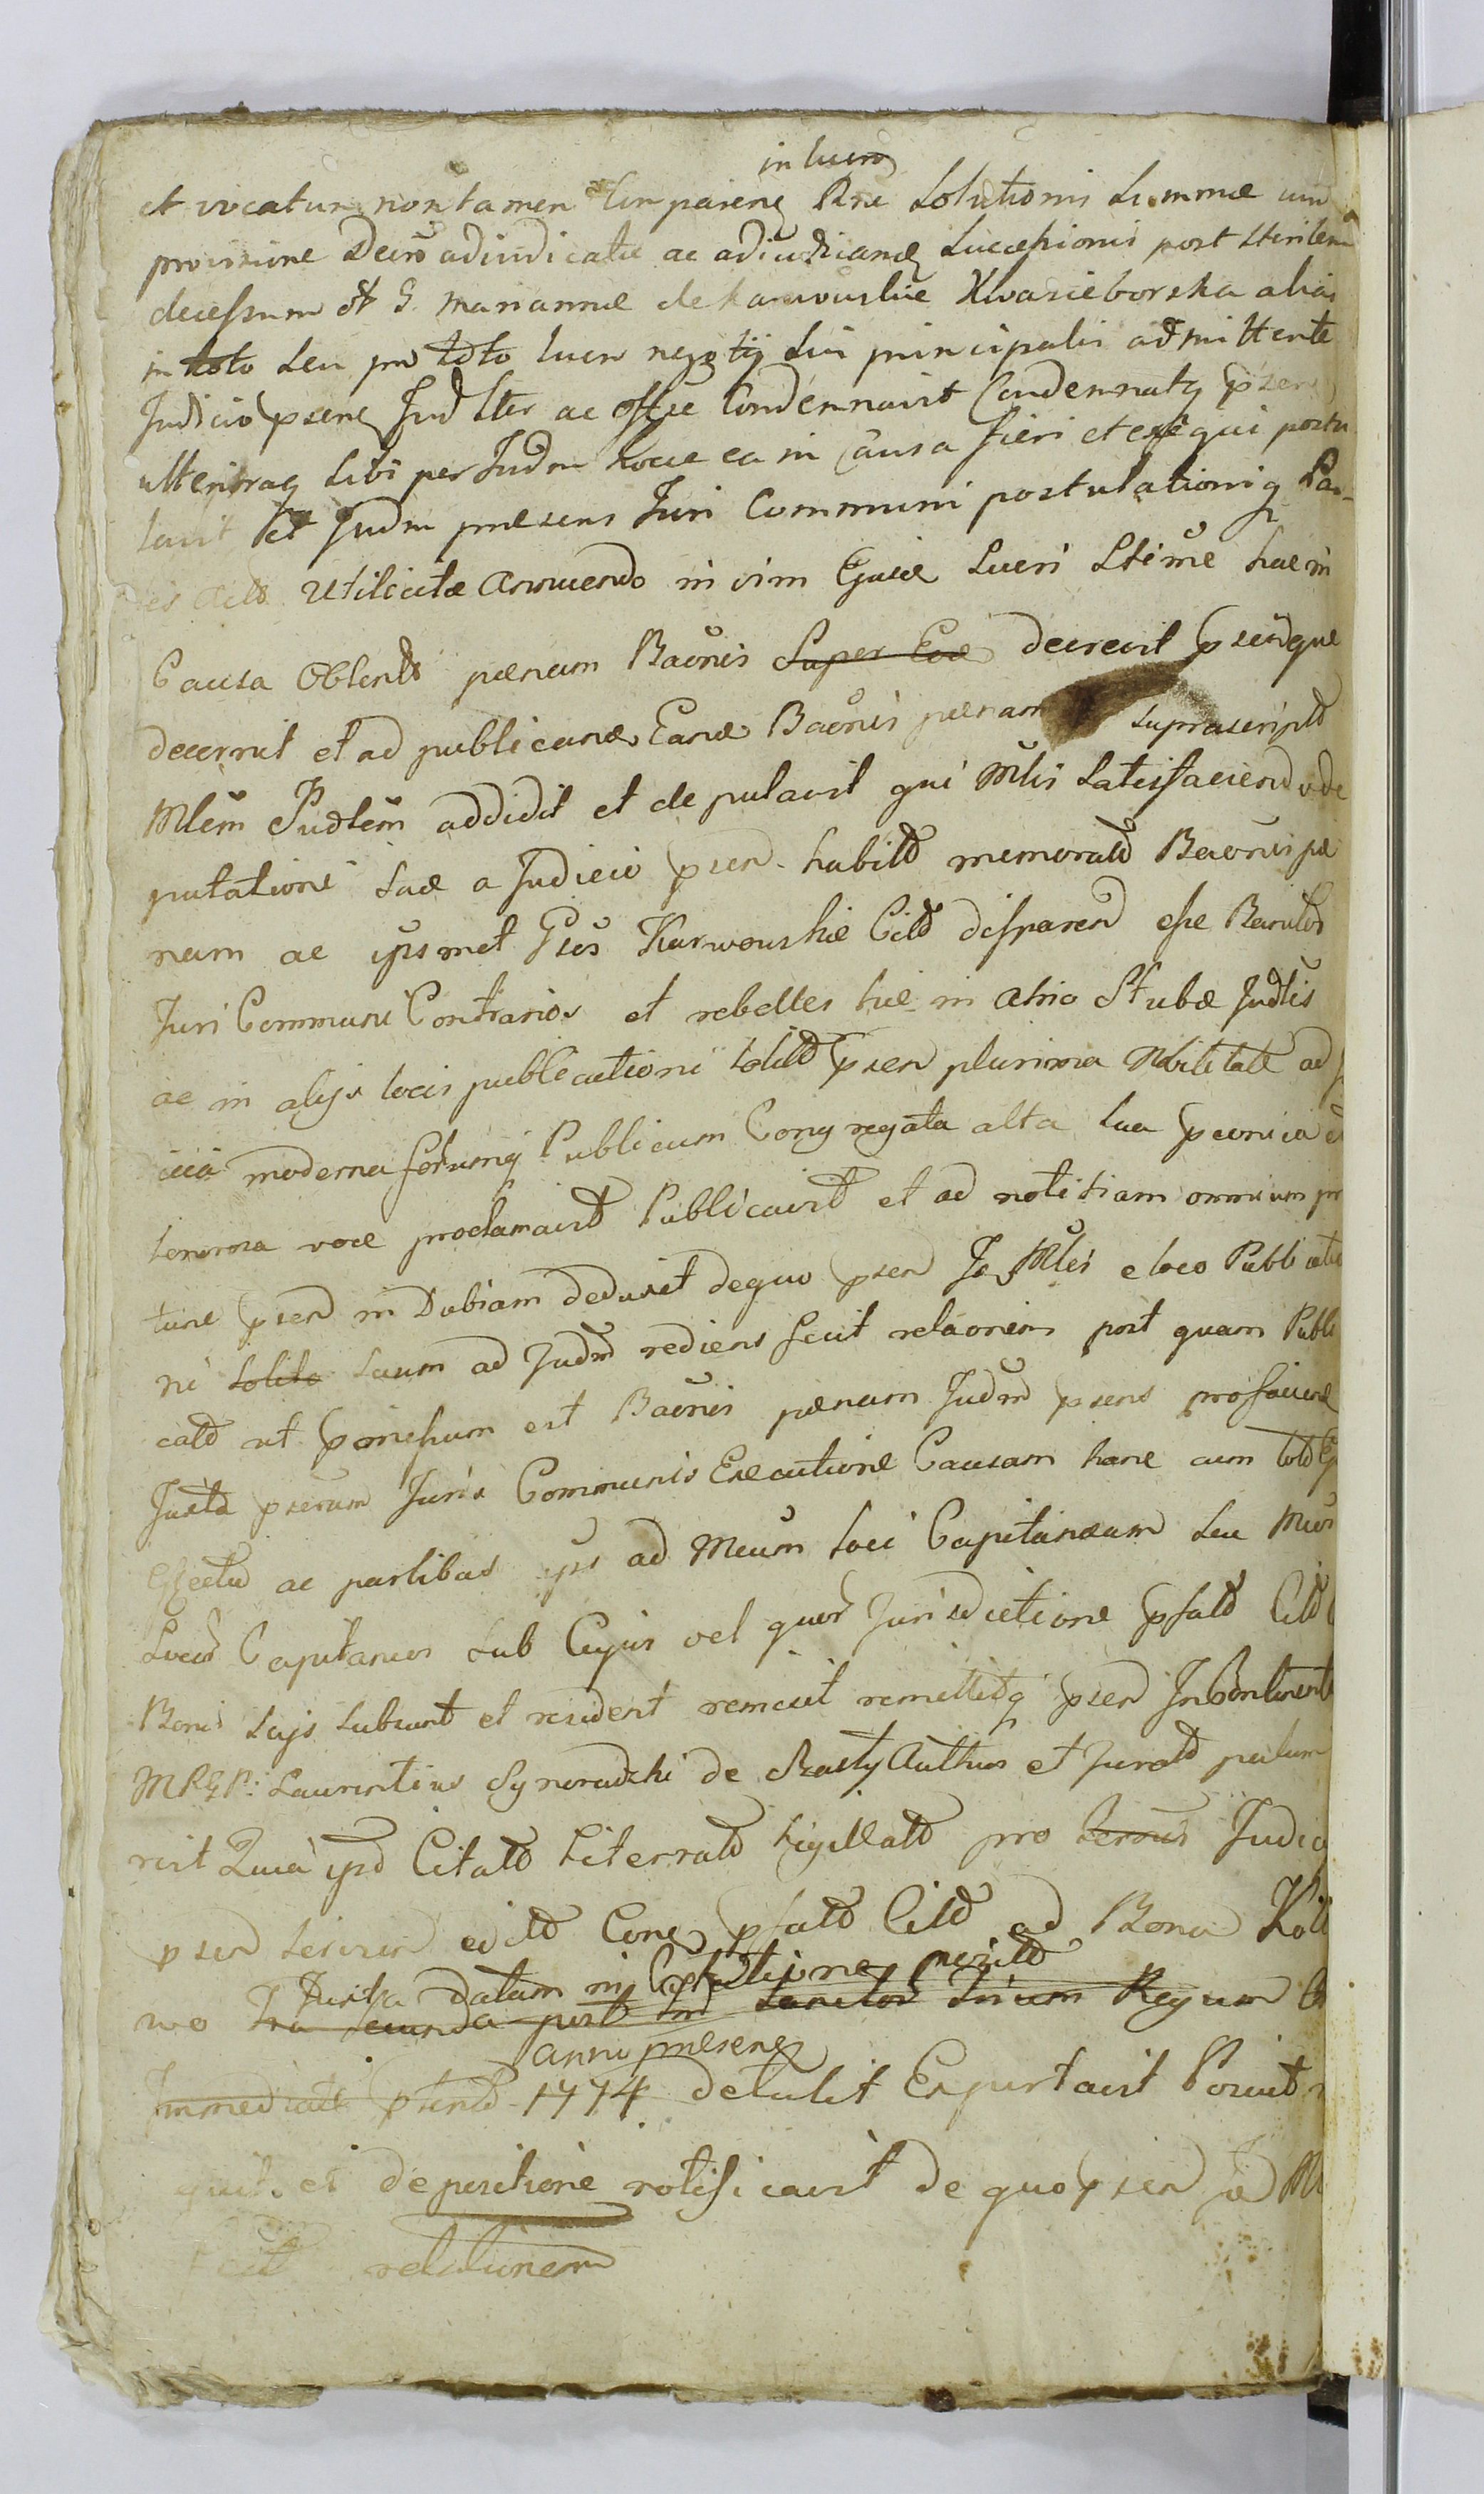 in lucro
et vocatur non tamen comparenț Rne Solutionis Summæ cum
provisione Decro adiudicatæ ac adiudicandæ Successionis post sterilem
decessum G. Mariannæ de Karwowskie Kwasieborska alias
in toto seu pro toto lucro negotij sui principalis admittente
Judicio psenț Judlter ac offse Condemnavit Condemnatq psen
ulterioraq sibi per Judm hocce ea in Causa fieri et exequi postu
lavit Et Judm præsens Juri Communi postulationiq Par-
tis Utilitatæ Annuendo in vim Lucri Stimæ hac in
Causa Obtentd pænam Baonis Super Eos decrevit psendque
decernit et ad publicand Eand Baonis pænam suprascriptd
Mlem Judlem addidit et deputavit qui Mlis Satisfaciend de
putationi suæ a Judicio psen habitd memoratd Baonis pæ
nam ac ipsmet Gsos Karwowskie Citd disparend esse Banitos
Juri Communi Contrarios et rebelles hic in Atrio Stubæ Judlis
ac in alijs locis publicationi solitd psen plurima Nobilitate ad
moderna forumq Publicum Congregata alta sua pconica et
sonorosa voce proclamavit Publicavit et ad notitiam omnium pro
tunc psen in Dubiam deduxit dequo psen Jd Mlis e loco Publicatio
ni solito suum ad Judm rediens fecit relaonem post quam Publi
catd ut pmissum est Baonis pænam Judm psens pro faciend
Juxta pscrum Juris Communis Executione Causam hanc cum totd
Effectu ac partibus ips ad Mcum loci Capitaneum seu Mcos
Locor Capitaneos sub Cujus vel quor Jurisdictione pfatd Citd
Bonis suis subsunt et resident remisit remittitq psen In Continenti
MRGP: Laurentius Synoradzki de Szasty Authus et Juratd palum
rit Quia ipsd Citatd Literratd sigillatd pro termis Judicij
psen servien editd Conq pfatd Citd ad Bona Kol
Juxta datam in Citatione posittd
wo fra secunda post fm Sanctor Trium Regum
anni præsenț
Immediate pterit 1774 detulit Exportavit Posuit
et depositione notificavit de quo psen jd Ml
fecit relationem